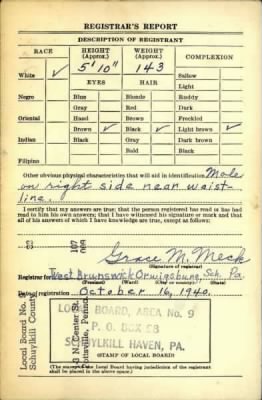 REGISTRAR'S REPORT
DESCRIPTION OF REGISTRANT
RACE HEIGHT (Approx.) WEIGHT (Approx.) COMPLEXION
White ✓ 5' 10" 143 Sallow
EYES HAIR Light
Negro Blue Blonde Ruddy
Gray Red Dark
Oriental Hazel Brown Freckled
Brown ✓ Black ✓ Light brown ✓
Indian Black Gray Dark brown
Bald Black
Filipino
Other obvious physical characteristics that will aid in identification Mole
on right side near waist-
line.
I certify that my answers are true; that the person registered has read or has had read to him his own answers; that I have witnessed his signature or mark and that all of his answers of which I have knowledge are true, except as follows:
Grace M. Meck
(Signature of registrar)
Registrar for West Brunswick Orwigsburg, Sch. Pa.
(Precinct) (Ward) (City or county) (State)
Date of registration October 16, 1940.
LOCAL BOARD, AREA No. 9
P. O. BOX 58
SCHUYLKILL HAVEN, PA.
(STAMP OF LOCAL BOARD)
(The stamp of the Local Board having jurisdiction of the registrant shall be placed in the above space.)
Local Board No. 9
Schuylkill County
107
N. Center St.
Pottsville, Penna.